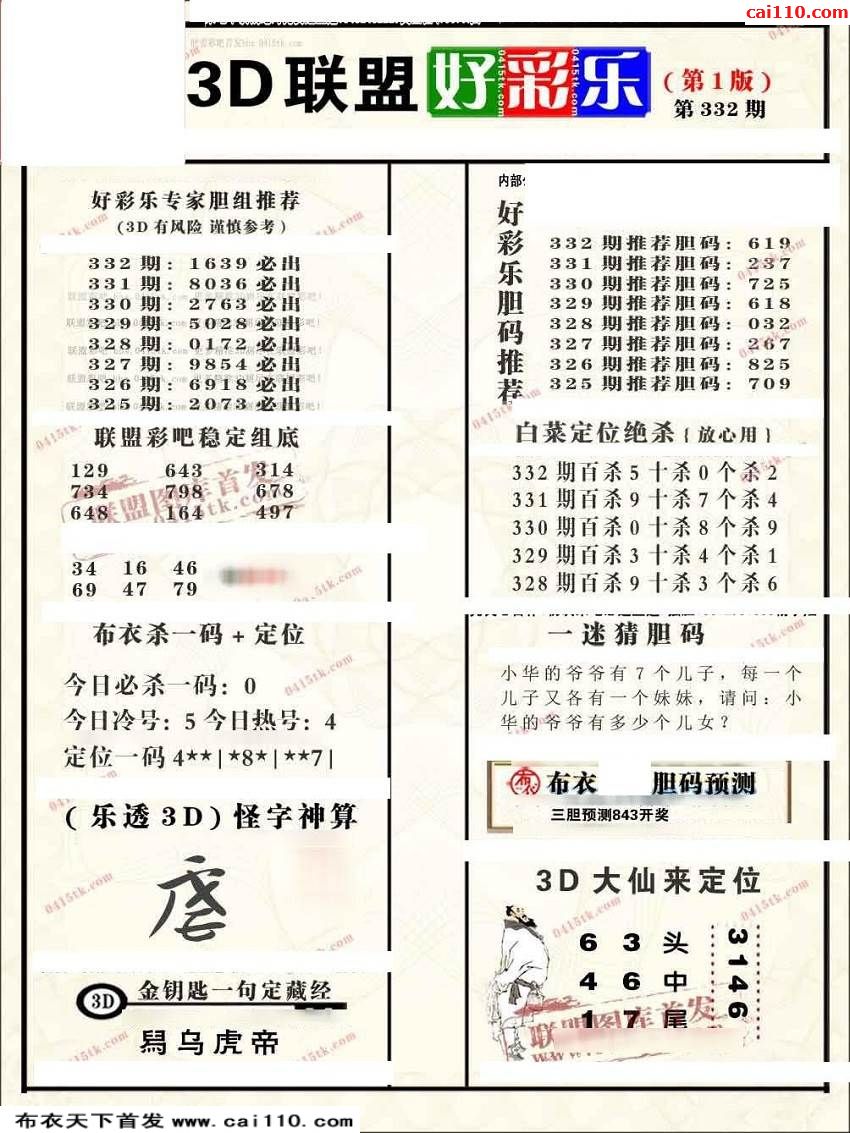 cai110.com
3D联盟好彩乐
(第1版)
第332期
好彩乐专家胆组推荐
(3D有风险 谨慎参考)
332期: 1639必出
331期: 8036必出
330期: 2763必出
329期: 5028必出
328期: 0172必出
327期: 9854必出
326期: 6918必出
325期: 2073必出
联盟彩吧稳定组底
129 643 314
734 798 678
648 164 497
34 16 46
69 47 79
布衣杀一码+定位
今日必杀一码: 0
今日冷号: 5 今日热号: 4
定位一码 4**|*8*|**7|
(乐透3D)怪字神算
3D 金钥匙一句定藏经
舄乌虎帝
内部
好彩乐胆码推荐
332期推荐胆码: 619
331期推荐胆码: 237
330期推荐胆码: 725
329期推荐胆码: 618
328期推荐胆码: 032
327期推荐胆码: 267
326期推荐胆码: 825
325期推荐胆码: 709
白菜定位绝杀{放心用}
332期百杀5十杀0个杀2
331期百杀9十杀7个杀4
330期百杀0十杀8个杀9
329期百杀3十杀4个杀1
328期百杀9十杀3个杀6
一迷猜胆码
小华的爷爷有7个儿子，每一个
儿子又各有一个妹妹，请问：小
华的爷爷有多少个儿女？
布衣 胆码预测
三胆预测843开奖
3D大仙来定位
6 3 头
4 6 中
1 7 尾
3146
联盟图库首发
0415tk.com
布衣天下首发 www.cai110.com